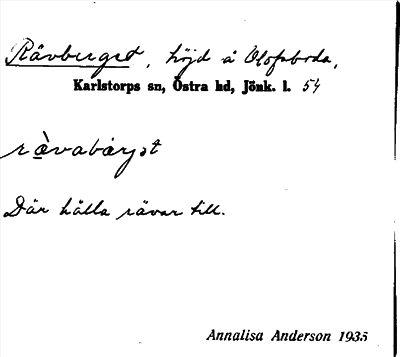 Rävberget, höjd å Olofsboda,
Karlstorps sn, Östra hd, Jönk. l. 54
rävabärjət
Där hålla rävar till.
Annalisa Anderson 1935